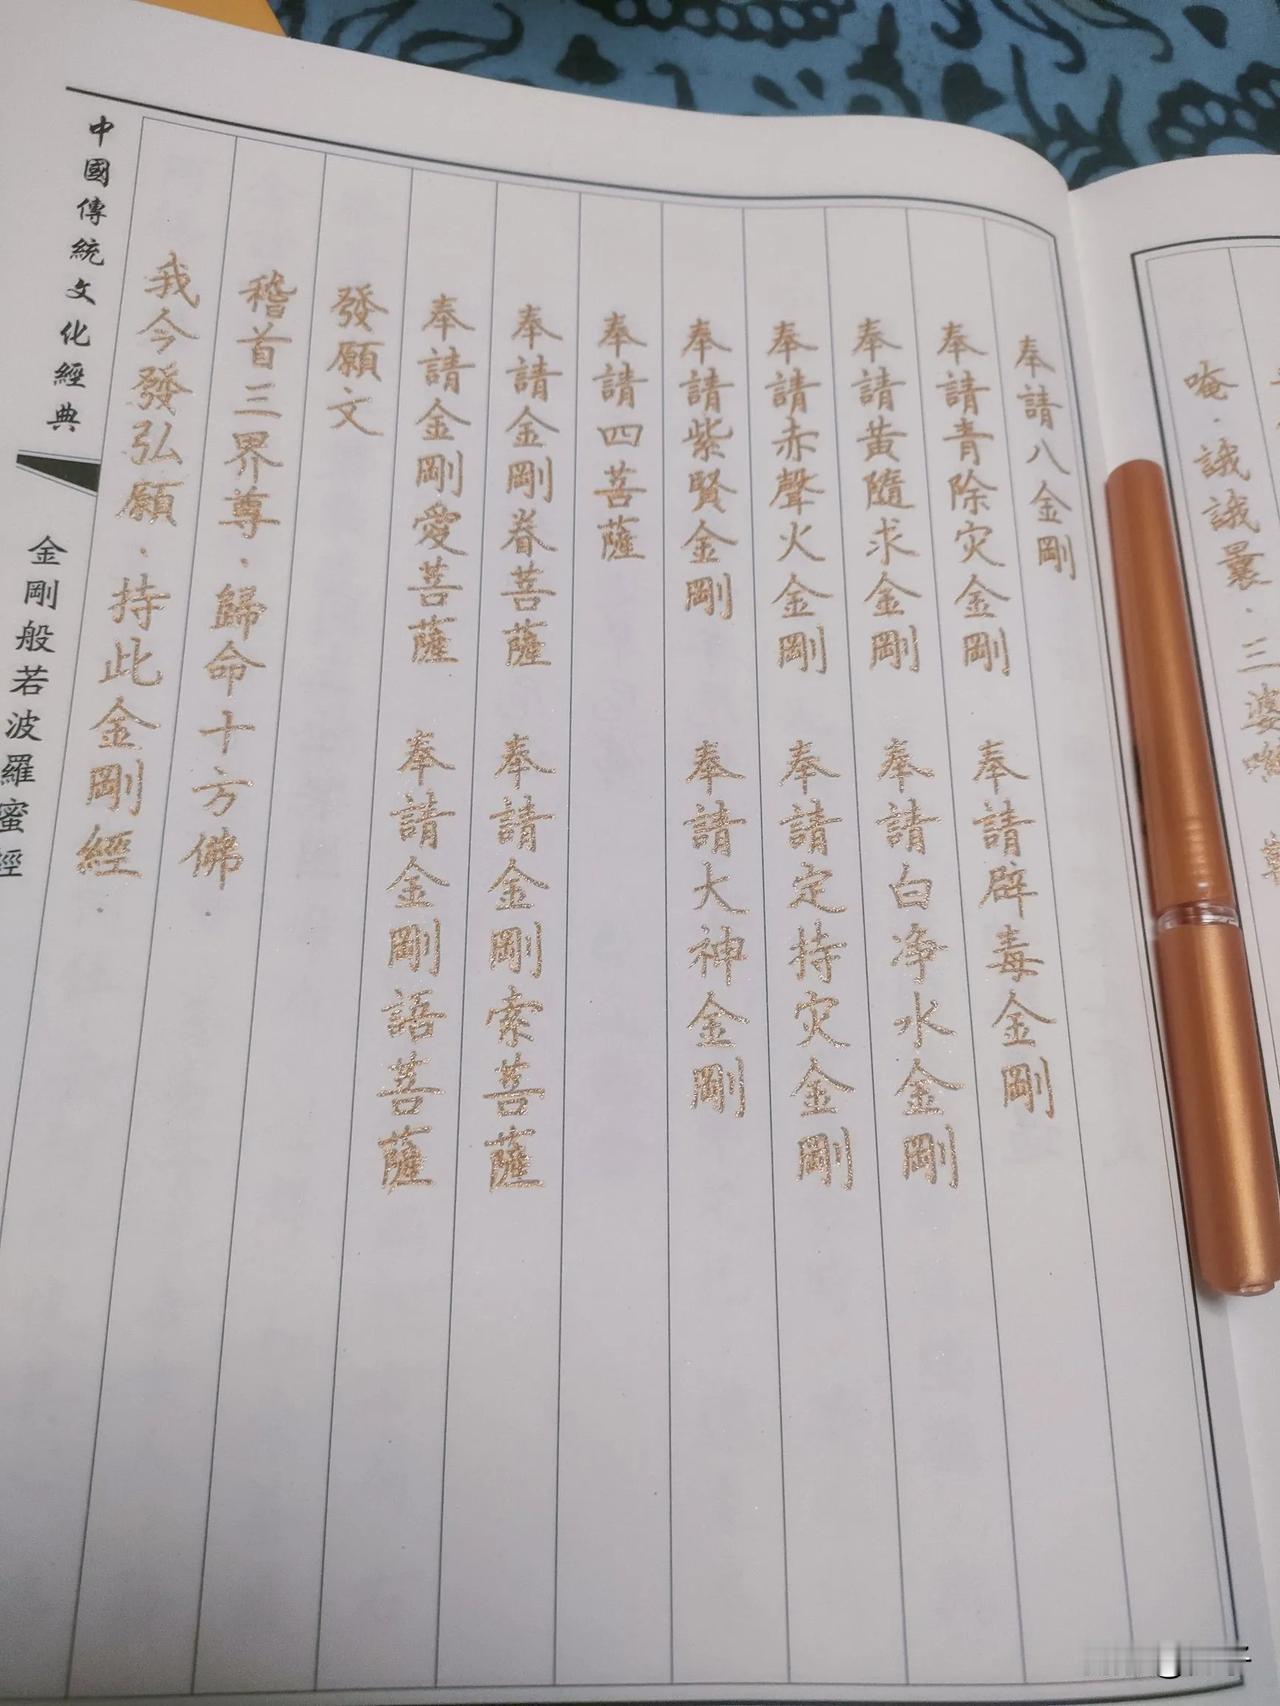 唵·誐誐曩·三婆
奉請八金剛
奉請青除灾金剛 奉請辟毒金剛
奉請黃隨求金剛 奉請白净水金剛
奉請赤聲火金剛 奉請定持灾金剛
奉請紫賢金剛 奉請大神金剛
奉請四菩薩
奉請金剛眷菩薩 奉請金剛索菩薩
奉請金剛愛菩薩 奉請金剛語菩薩
發願文
稽首三界尊·歸命十方佛·
我今發弘願·持此金剛經·
中國傳統文化經典
金剛般若波羅蜜經